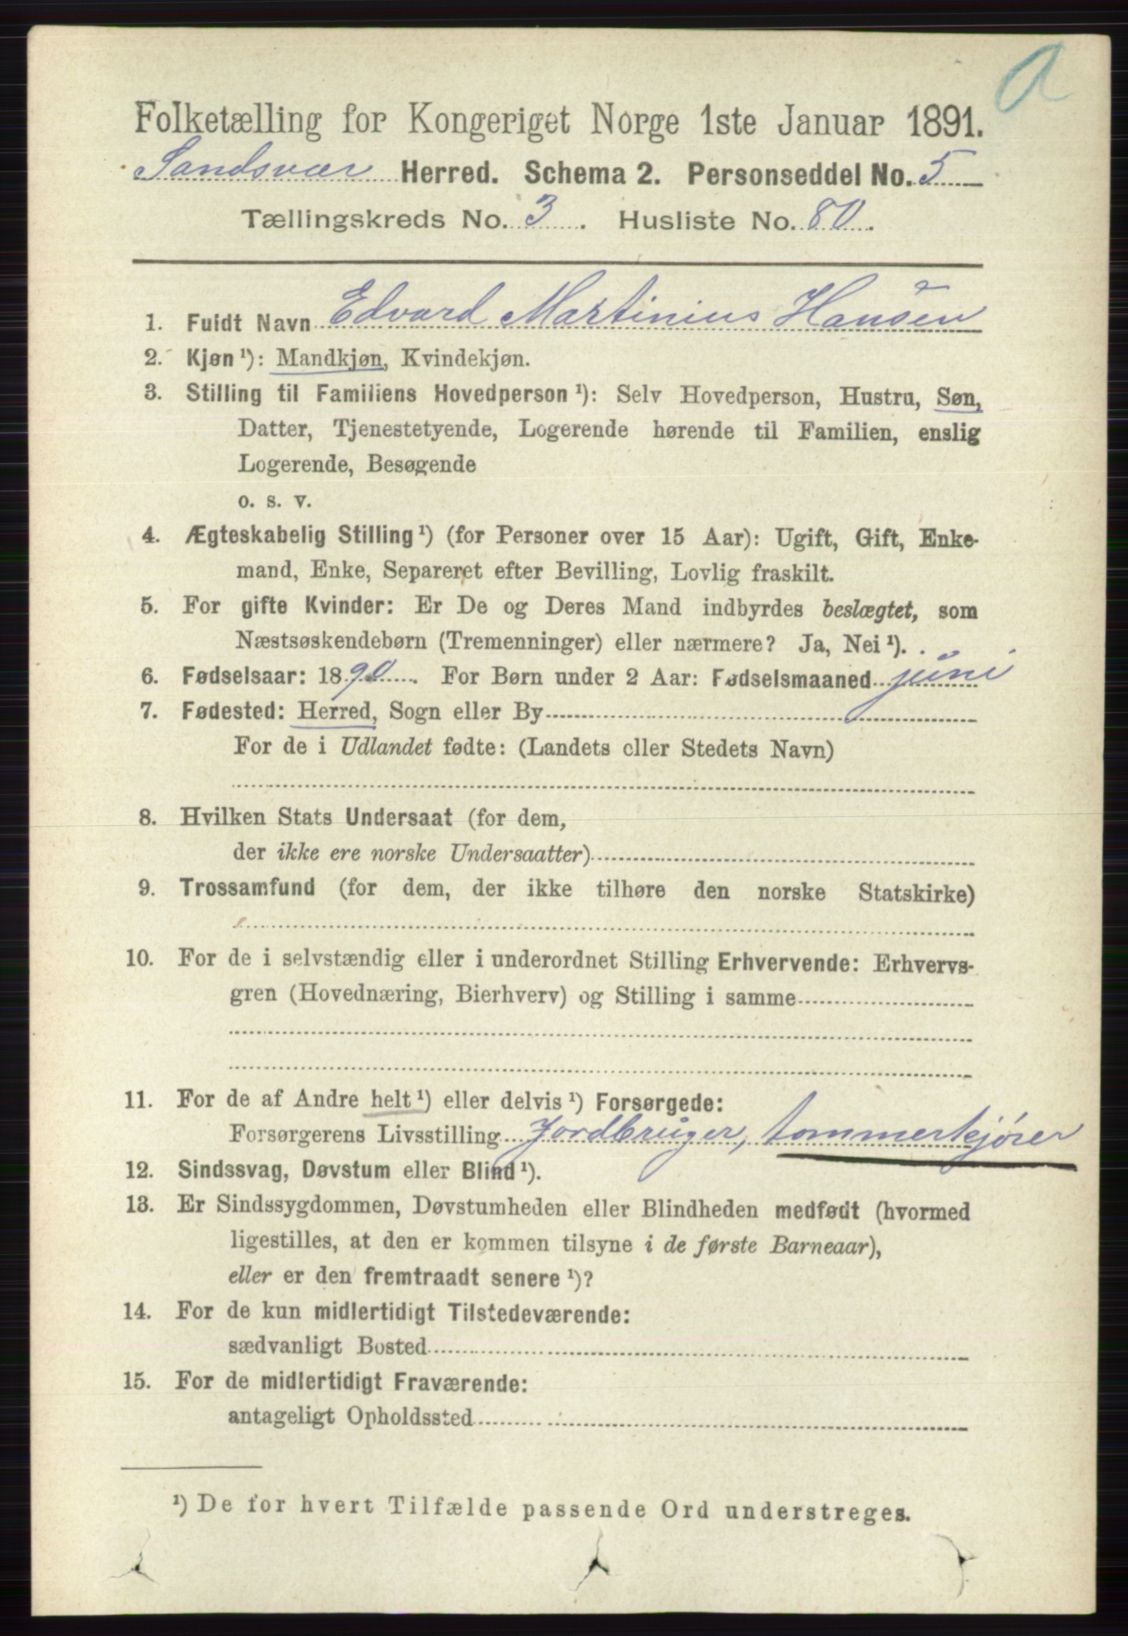 a
Folketælling for Kongeriget Norge 1ste Januar 1891.
Sandsvær Herred. Schema 2. Personseddel No. 5
Tællingskreds No. 3. Husliste No. 80.
1. Fuldt Navn Edvard Martinius Hansen
2. Kjøn ¹): Mandkjøn, Kvindekjøn.
3. Stilling til Familiens Hovedperson ¹): Selv Hovedperson, Hustru, Søn,
Datter, Tjenestetyende, Logerende hørende til Familien, enslig
Logerende, Besøgende
o. s. v.
4. Ægteskabelig Stilling ¹) (for Personer over 15 Aar): Ugift, Gift, Enke-
mand, Enke, Separeret efter Bevilling, Lovlig fraskilt.
5. For gifte Kvinder: Er De og Deres Mand indbyrdes beslægtet, som
Næstsøskendebørn (Tremenninger) eller nærmere? Ja, Nei ¹).
6. Fødselsaar: 1890. For Børn under 2 Aar: Fødselsmaaned juni
7. Fødested: Herred, Sogn eller By
For de i Udlandet fødte: (Landets eller Stedets Navn)
8. Hvilken Stats Undersaat (for dem,
der ikke ere norske Undersaatter)
9. Trossamfund (for dem, der ikke tilhøre den norske Statskirke)
10. For de i selvstændig eller i underordnet Stilling Erhvervende: Erhvervs-
gren (Hovednæring, Bierhverv) og Stilling i samme
11. For de af Andre helt ¹) eller delvis ¹) Forsørgede:
Forsørgerens Livsstilling Jordbruger, tømmerkjører
12. Sindssvag, Døvstum eller Blind ¹).
13. Er Sindssygdommen, Døvstumheden eller Blindheden medfødt (hvormed
ligestilles, at den er kommen tilsyne i de første Barneaar),
eller er den fremtraadt senere ¹)?
14. For de kun midlertidigt Tilstedeværende:
sædvanligt Bosted
15. For de midlertidigt Fraværende:
antageligt Opholdssted
¹) De for hvert Tilfælde passende Ord understreges.